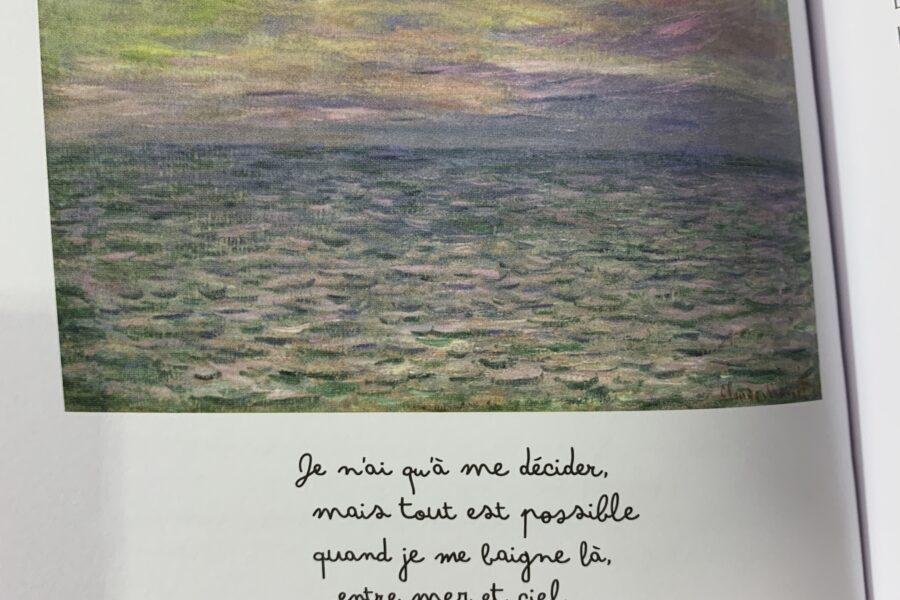 Claude Monet
Je n'ai qu'à me décider,
mais tout est possible
quand je me baigne là,
entre mer et ciel.